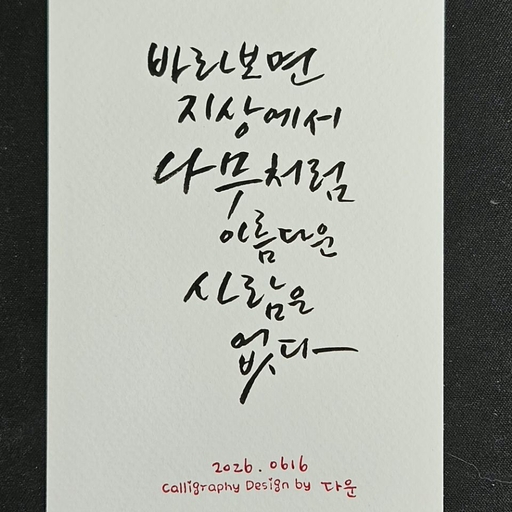 바라보면
지상에서
나무처럼
아름다운
사람은
없다
2026.0616
Calligraphy Design by 다운